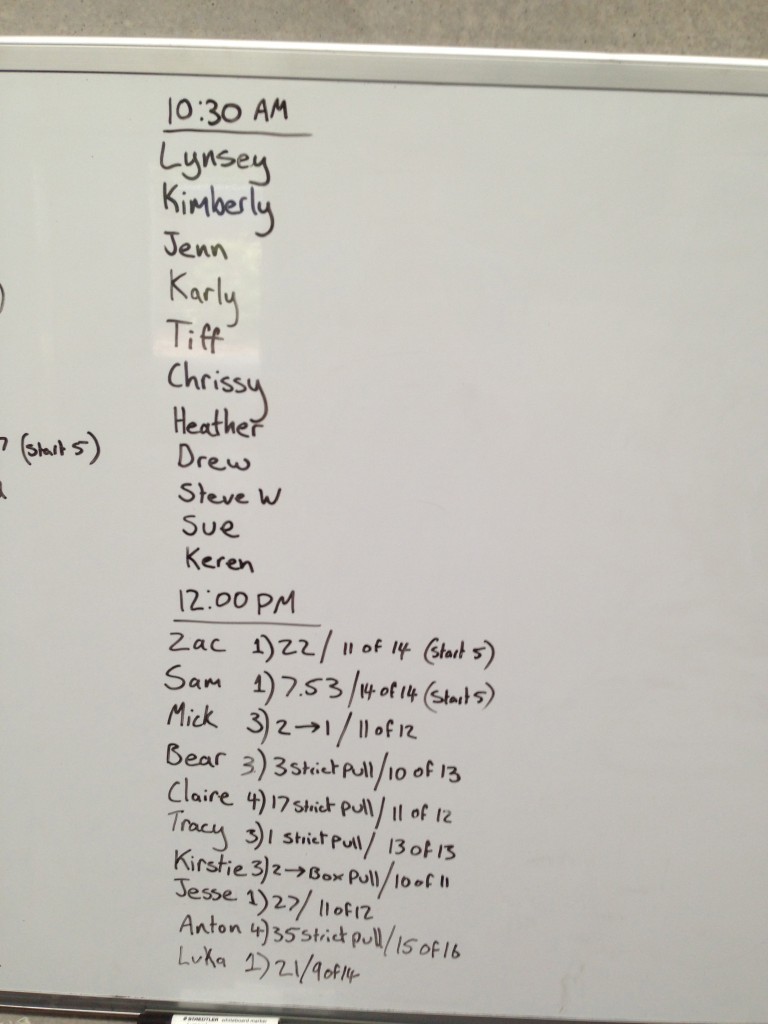 10:30 AM
Lynsey
Kimberly
Jenn
Karly
Tiff
Chrissy
Heather
(Start 5)
Drew
Steve W
Sue
Keren
12:00 PM
Zac 1) 22 / 11 of 14 (Start 5)
Sam 1) 7.53 / 14 of 14 (Start 5)
Mick 3) 2 → 1 / 11 of 12
Bear 3) 3 strict pull / 10 of 13
Claire 4) 17 strict pull / 11 of 12
Tracy 3) 1 strict pull / 13 of 13
Kirstie 3) 2 → Box Pull / 10 of 11
Jesse 1) 27 / 11 of 12
Anton 4) 35 strict pull / 15 of 16
Luka 1) 21 / 9 of 14
STAEDTLER whiteboard marker